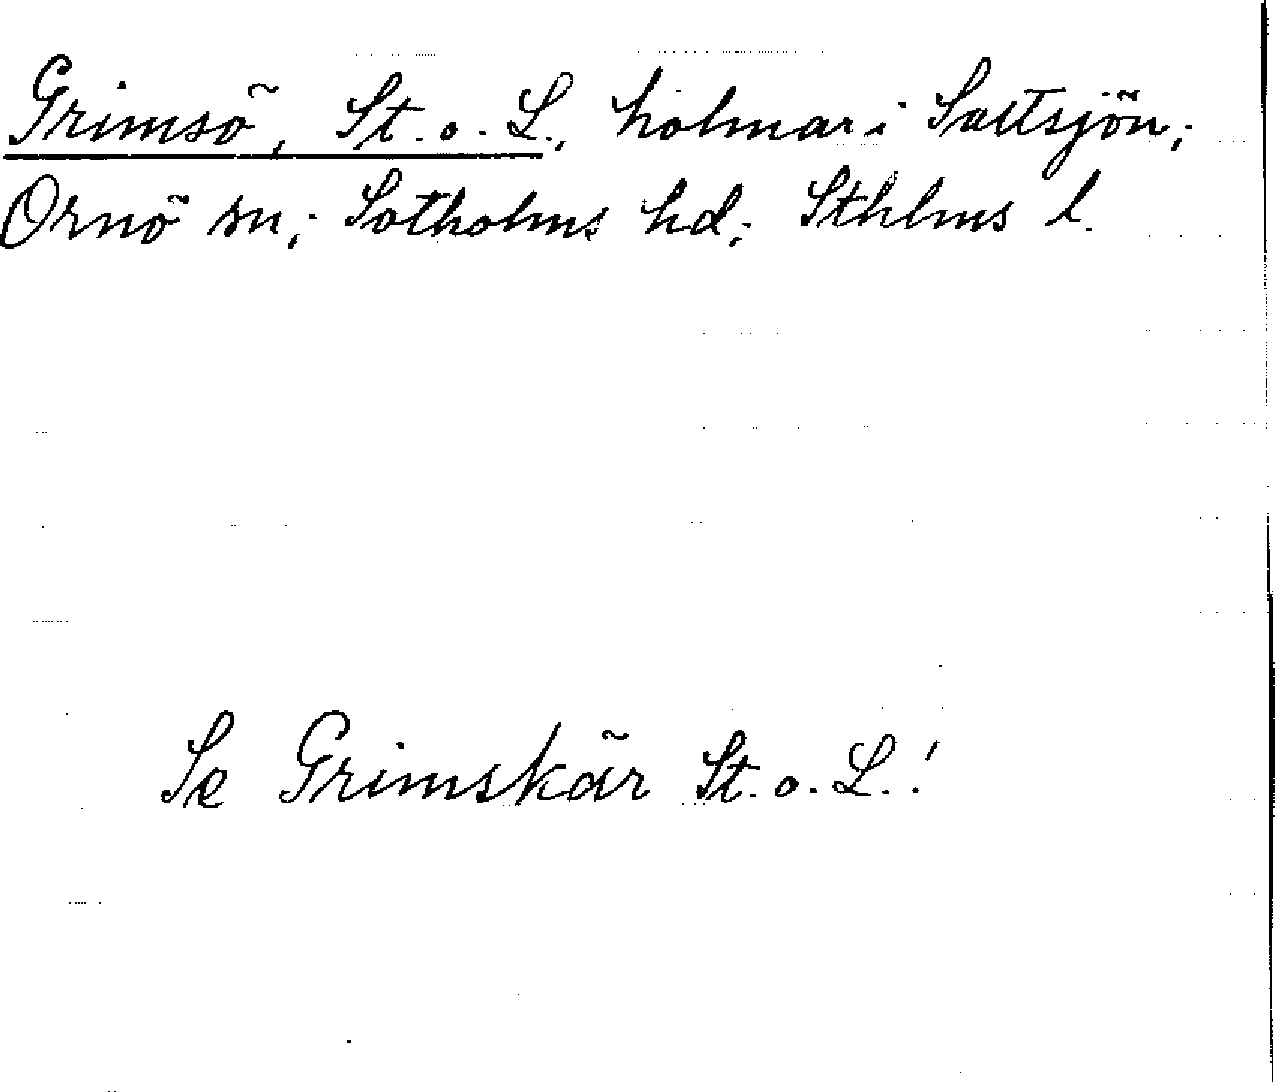 Grimsö, St. o. L., holmar i Saltsjön;
Ornö sn; Sotholms hd; Sthlms l.
Se Grimskär St. o. L.!